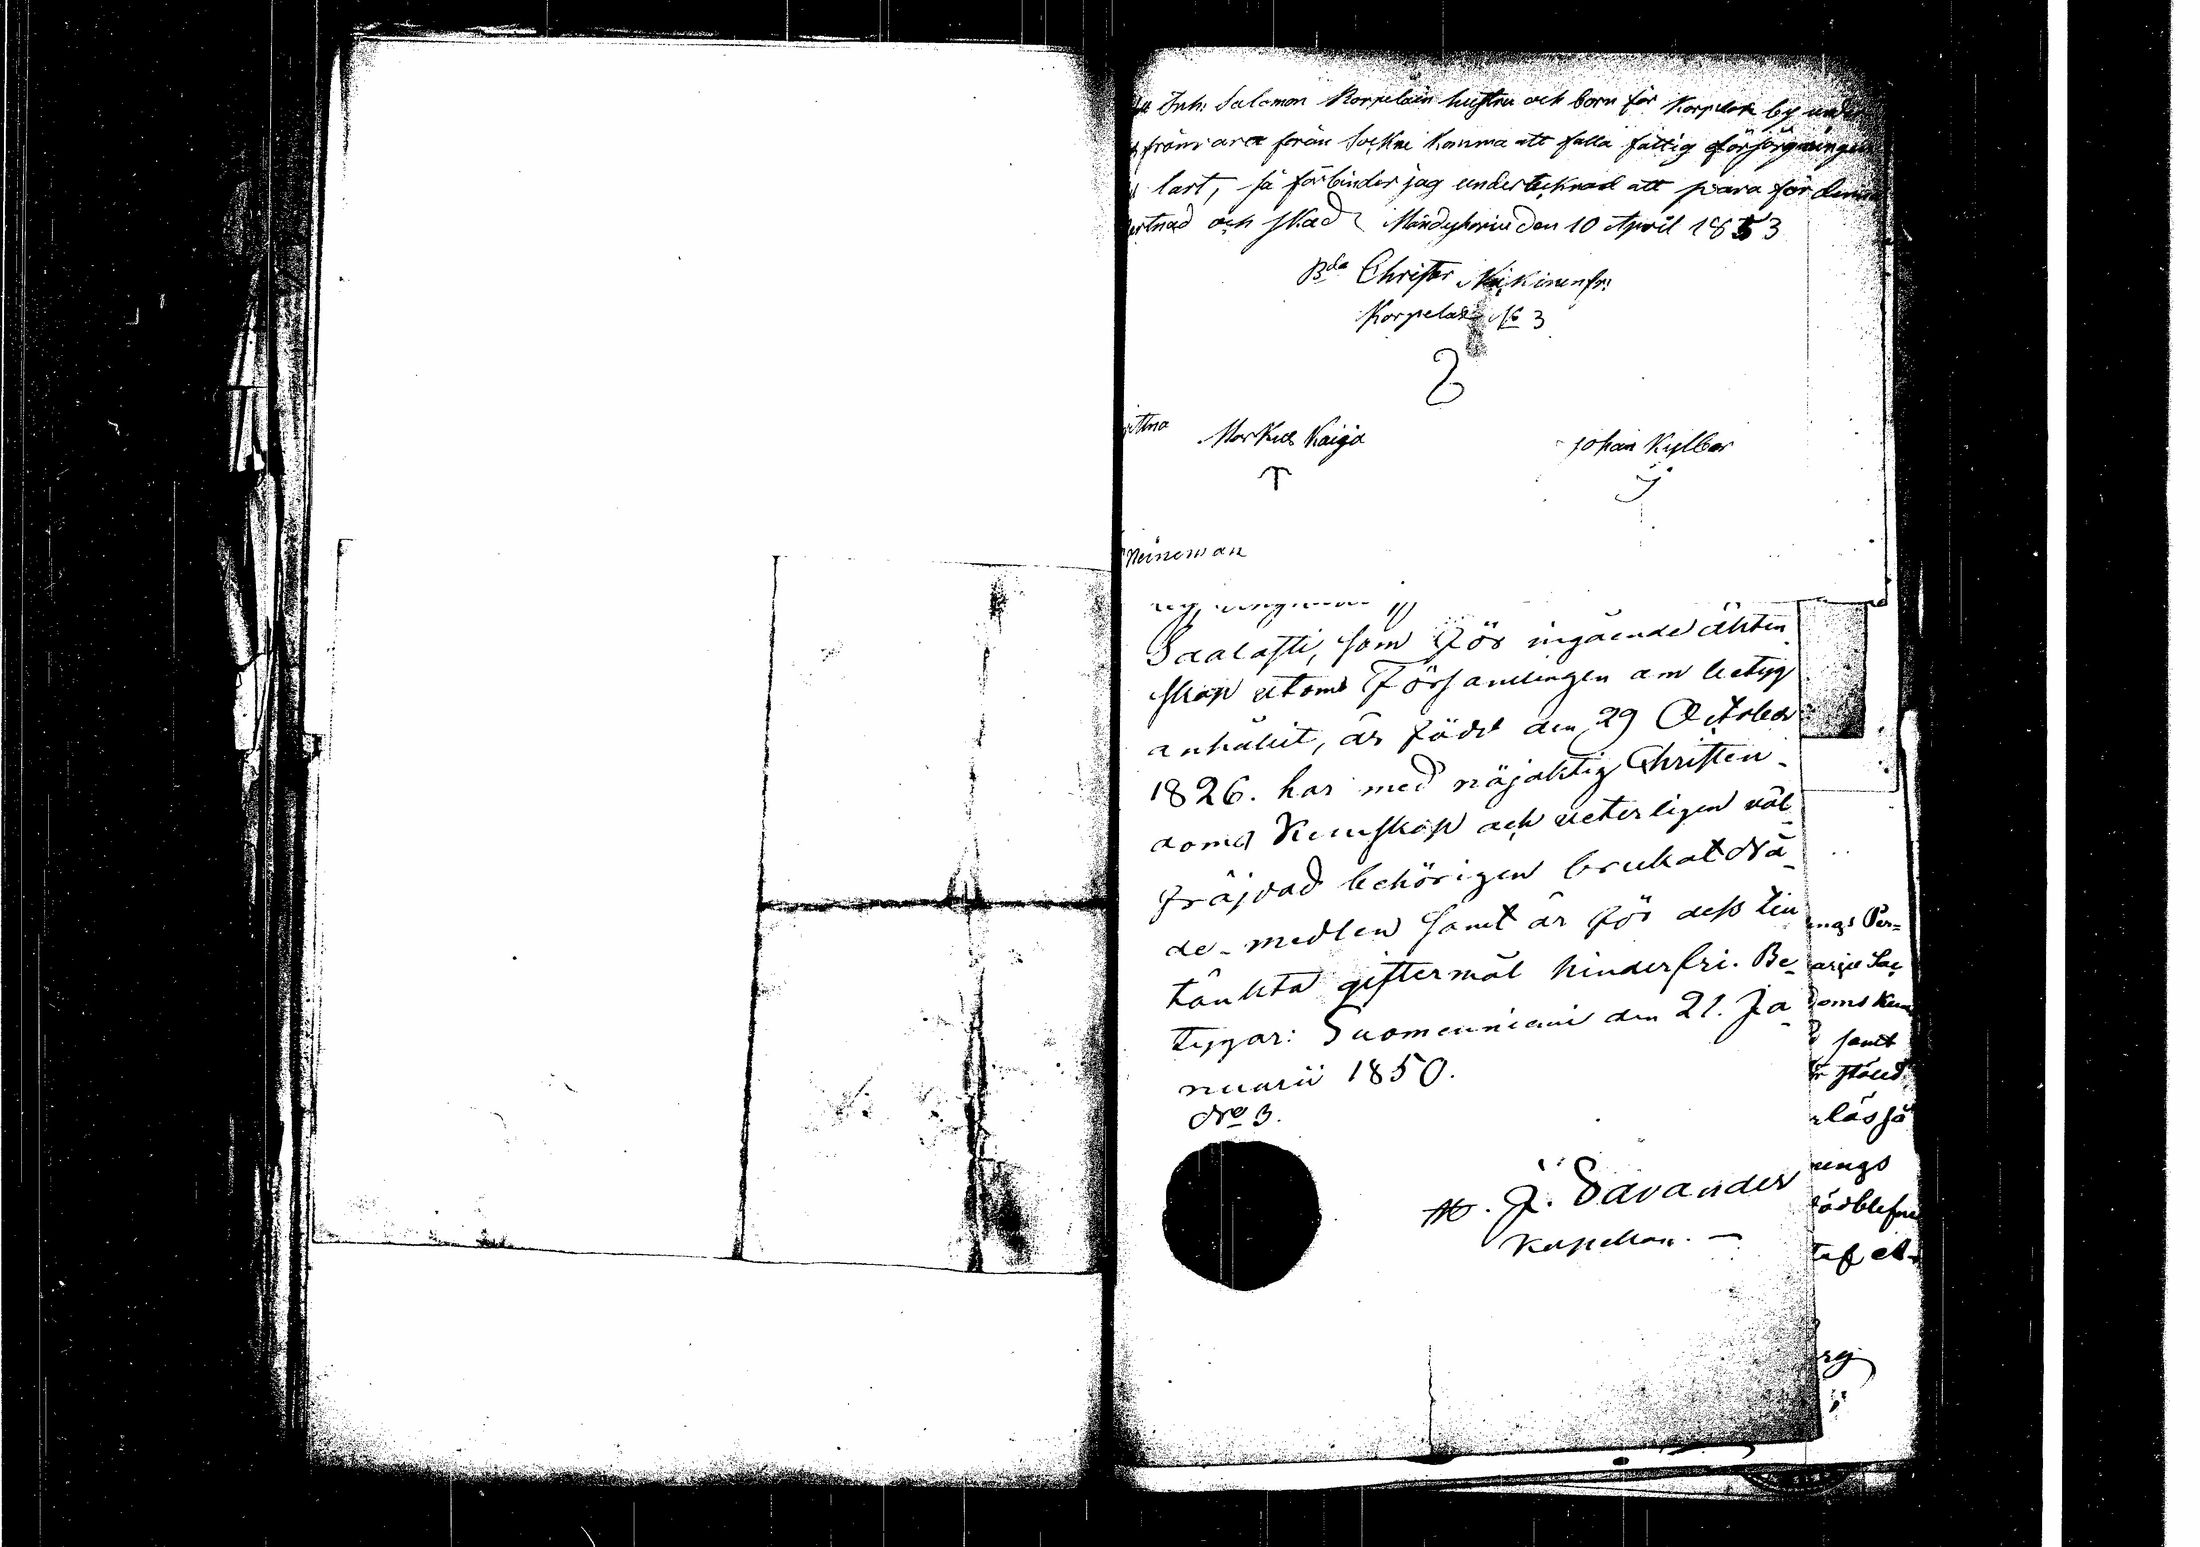 Inh: Salomon Korpelain hustru och born för Korpelax by under
framvara foran Sockne komma att falla fattig försörgningen
last, så förbinder jag undertecknad att svara för denna
och skad Mändyharju den 10 April 1853
Bda Christer Kikinen fr:
Korpelax No 3
Markus Kaija
Johan Kylber
Heineman
Saalasti, som för ingående äkten
skap utom Församlingen om betyg
anhållit, är född den 29 October
1826. har med nöjaktig Christen-
doms Kunskap och veterligen väl
fräjdad behörigen brukat Nå-
de-medlen samt är för dess till
tänkta giftermål hinderfri. Be-
tygar: Suomenniemi den 21. Ja-
nuarii 1850.
No 3.
J. Savander
Kapellan.
ngs Per=
arju Soc
doms Kun
samt
stånd
läs så
ungs